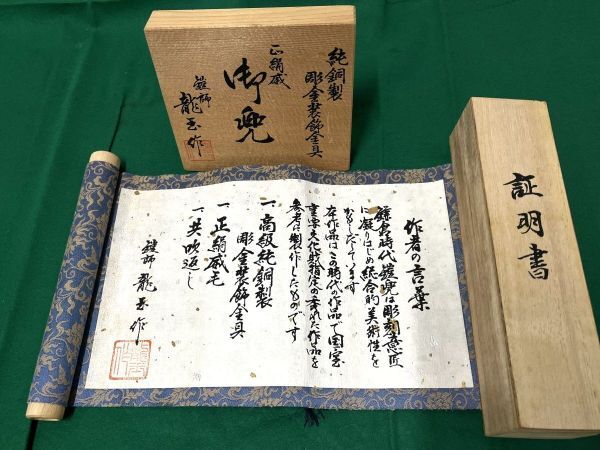 純銅製
彫金装飾金具
正絹威
御兜
鎧師
龍玉作
作者の言葉
鎌倉時代鎧兜は彫刻意匠
に凝りはじめ綜合的美術性を
本作品はこの時代の作品で国宝
重要文化財指定の優れた作品を
参考に製作したものです
一、高級純銅製
彫金装飾金具
一、正絹威毛
一、共吹返し
鎧師 龍玉作
証明書